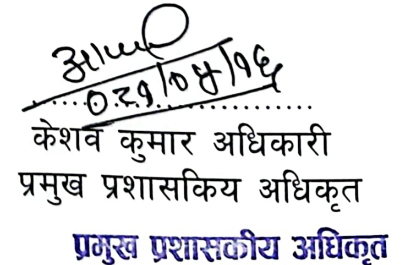 ०८१/०४/१६
केशव कुमार अधिकारी
प्रमुख प्रशासकिय अधिकृत
प्रमुख प्रशासकीय अधिकृत